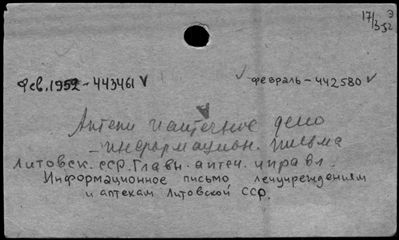 17/3-52 Э
Фев. 1952-443461 V
февраль-442580 V
Аптеки и аптечное дело
- информацион. письма
Литовск. сср. Главн. аптеч. управл.
Информационное письмо лечучреждениям
и аптекам Литовской ССР.